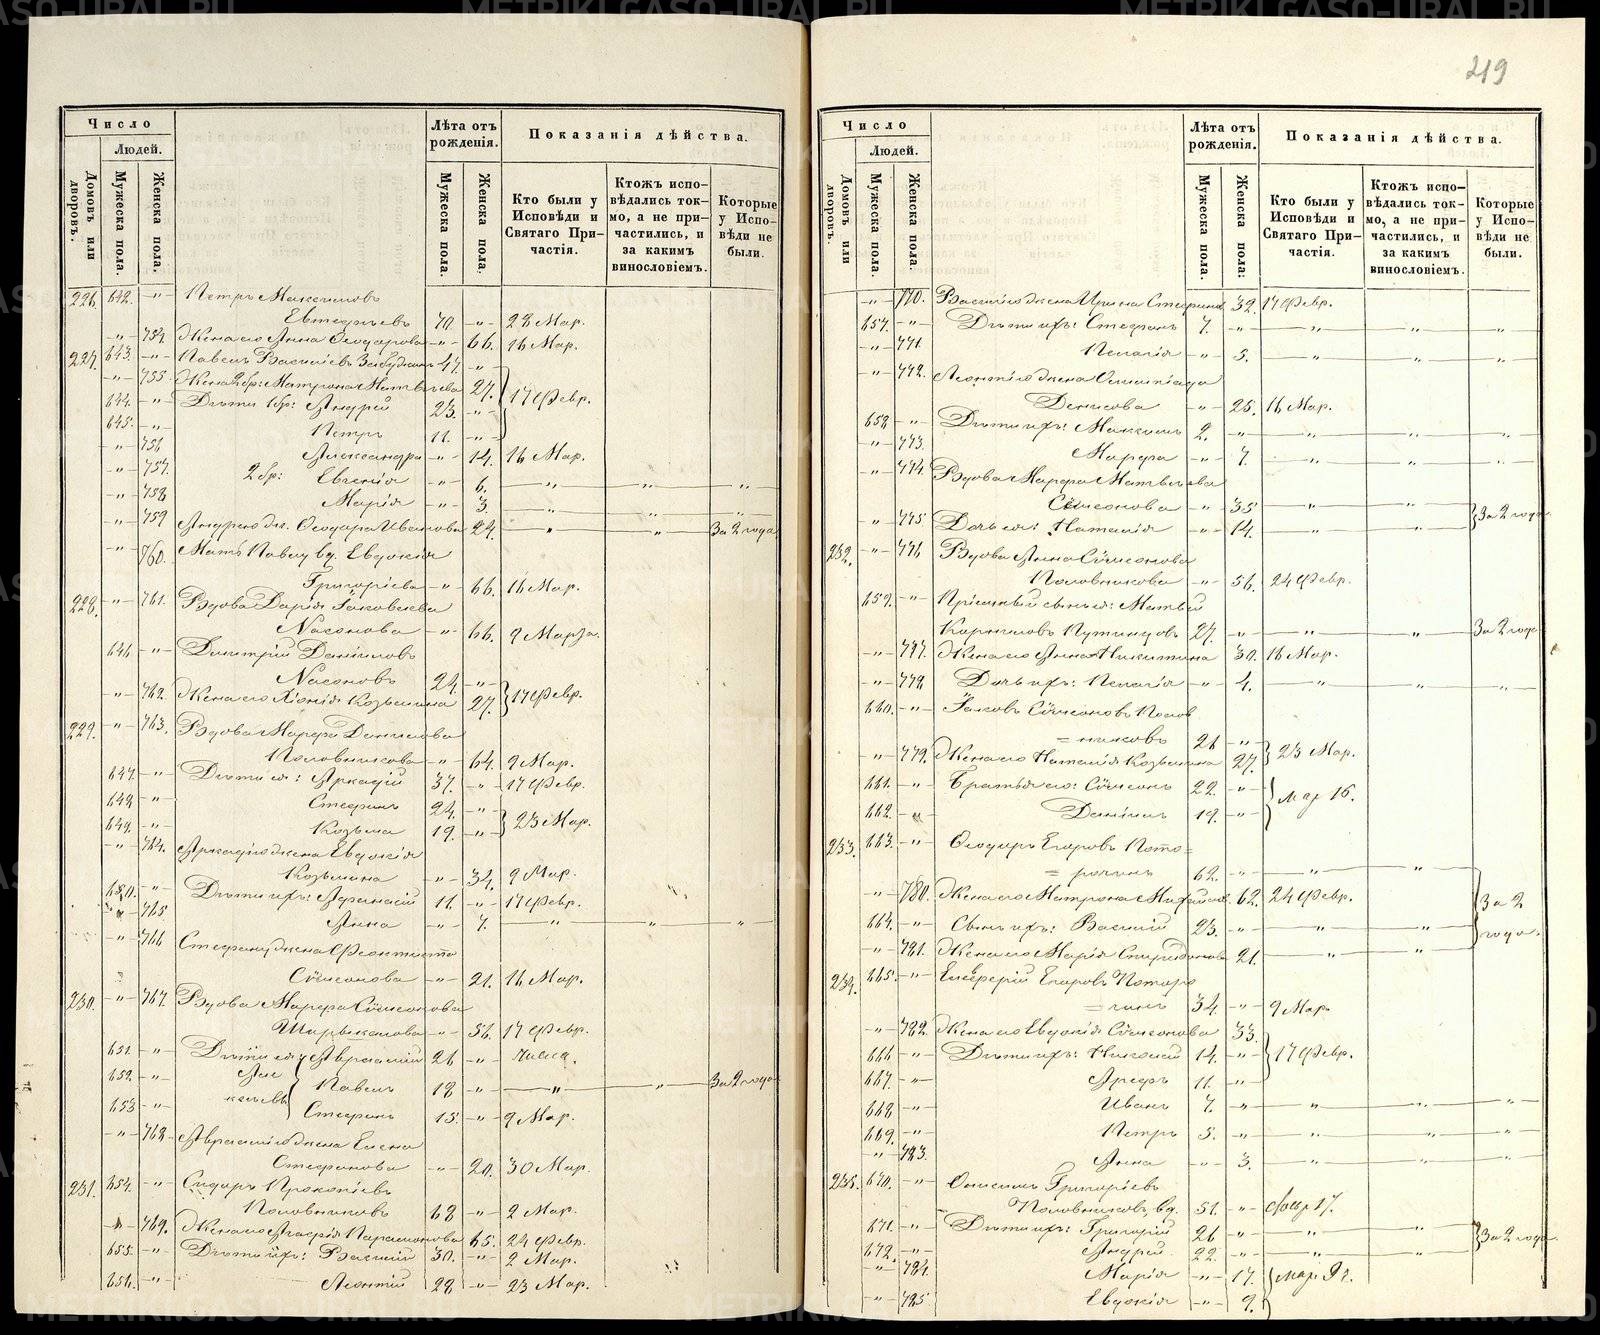 219
Число
Людей.
Домовъ или дворовъ.
Мужеска пола.
Женска пола.
Лѣта отъ рожденія.
Мужеска пола.
Женска пола.
Показанія дѣйства.
Кто были у Исповѣди и Святаго При-
частія.
Ктожъ испо-
вѣдались ток-
мо, а не при-
частились, и
за какимъ
винословіемъ.
Которые
у Испо-
вѣди не
были.
226. 642. -"- Петръ Максимовъ
Евтефьевъ 70. -"- 28 Мар.
-"- 754. Жена его Анна Ѳеодорова -"- 66. 16 Мар.
227. 643. -"- Павелъ Васильевъ 47. -"-
-"- 755. Жена 2 бр: Матрона Матвѣева 27.
644. -"- Дѣти 1 бр: Андрей 23. -"- 17 Февр.
645. -"- Петръ 11. -"-
-"- 756 Александра -"- 14. 16 Мар.
-"- 757. 2 бр: Евгенія -"- 6. -"- -"- -"-
-"- 758 Марія -"- 3. -"- -"- -"-
-"- 759 Андрею ж. Ѳеодора Иванова 24. -"- -"- За 2 года
-"- 760. Мать Павлу вд. Евдокія
Григоріева -"- 66. 16 Мар.
228. -"- 761. Вдова Дарія Іаковлева
Насонова -"- 66. 9 Марта.
646 -"- Димитрій Даніиловъ
Насоновъ 24. -"-
-"- 762. Жена его Хіонія Козьмина 27. 17 Февр.
229. -"- 763. Вдова Марфа Данилова
Половникова -"- 64. 9 Мар.
647. -"- Дѣти ея: Аркадій 37. -"- 17 Февр.
648 -"- Стефанъ 24. -"-
649. -"- Козьма 19. -"- 23 Мар.
-"- 764. Аркадію жена Евдокія
Козьмина -"- 34. 9 Мар.
650. -"- Дѣти ихъ: Аѳанасій 11. -"- 17 Февр.
-"- 765 Анна -"- 7. -"- -"- -"-
-"- 766 Стефану жена Феоктиста
Сѵмеонова -"- 21. 16 Мар.
230. -"- 767. Вдова Марфа Сѵмеонова
-"- 56. 17 Февр.
651. -"- Дѣти ея Авраамій 26 -"-
652. -"- Павелъ 18 -"- -"- -"- За 2 года
653 -"- Стефанъ 15. -"- 9 Мар.
-"- 768. Авраамію жена Елена
Стефанова -"- 20. 30 Мар.
231. 654. -"- Сидоръ Прокопіевъ
Половниковъ 68 -"- 2 Мар.
-"- 769. Жена его Парамонова 65. 24 Февр.
655. -"- Дѣти ихъ: Василій 30. -"- 2 Мар.
656. -"- Леонтій 28 -"- 23 Мар.
Число
Людей.
Домовъ или дворовъ.
Мужеска пола.
Женска пола.
Лѣта отъ рожденія.
Мужеска пола.
Женска пола:
Показанія дѣйства.
Кто были у Исповѣди и Святаго При-
частія.
Ктожъ испо-
вѣдались ток-
мо, а не при-
частились, и
за какимъ
винословіемъ.
Которые
у Испо-
вѣди не
были.
-"- 770. Василію жена Ирина Стефанова 32. 17 Февр.
657. -"- Дѣти ихъ: Стефанъ 7. -"- -"- -"- -"-
-"- 771. Пелагія -"- 5. -"- -"- -"-
-"- 772. Леонтію жена Олимпіада
Денисова -"- 26. 16 Мар.
658 -"- Дѣти ихъ: Максимъ 2. -"- -"- -"- -"-
-"- 773. Марфа -"- 7. -"- -"- -"-
-"- 774. Вдова Марфа Матвѣева
Сѵмеонова -"- 35 -"- -"- За 2 года
-"- 775 Дочь ея: Наталія -"- 14. -"- -"-
232. -"- 776 Вдова Анна Сѵмеонова
Половникова -"- 56. 24 Февр.
659. -"- Пріемный сынъ ея: Матвѣй
Корниловъ Путинцовъ 27. -"- -"- -"- За 2 года
-"- 777. Жена его Анна Никитина 30. 16 Мар.
-"- 778 Дочь ихъ: Пелагія -"- 4. -"- -"- -"-
660. -"- Іаковъ Сѵмеоновъ Полов
=никовъ 26 -"-
-"- 779. Жена его Наталія Козьмина 27. 23 Мар.
661. -"- Братья его: Сѵмеонъ 22. -"-
662. -"- Даніилъ 19. -"- Мар 16.
233. 663. -"- Ѳеодоръ Егоровъ Пото=
=рочинъ 62. -"- -"- -"-
-"- 780. Жена его Матрона Михайлова 62. 24 Февр. За 2
664. -"- Сынъ ихъ: Василій 23. -"- -"- -"- года.
-"- 781. Жена его Марія Спиридонова 21. -"- -"-
234. 665. -"- Елеѳерій Егоровъ Поторо
=чинъ 34. -"- 9 Мар
-"- 782. Жена его Евдокія Сѵмеонова 33.
666 -"- Дѣти ихъ: Николай 14. -"- 17 Февр.
667. -"- Арефъ 11. -"-
668 -"- Иванъ 7. -"- -"- -"- -"-
669. -"- Петръ 5. -"- -"- -"- -"-
-"- 783. Анна -"- 3. -"- -"- -"-
235. 670. -"- Онисимъ Григоріевъ
Половниковъ вд. 51. -"- Февр 17.
671. -"- Дѣти ихъ: Григорій 26 -"- -"- -"- За 2 года
672. -"- Андрей 22. -"- -"- -"-
-"- 784. Марія -"- 17. Мар. 9 ч.
-"- 785 Евдокія -"- 9.
METRIKI.GASO-URAL.RU